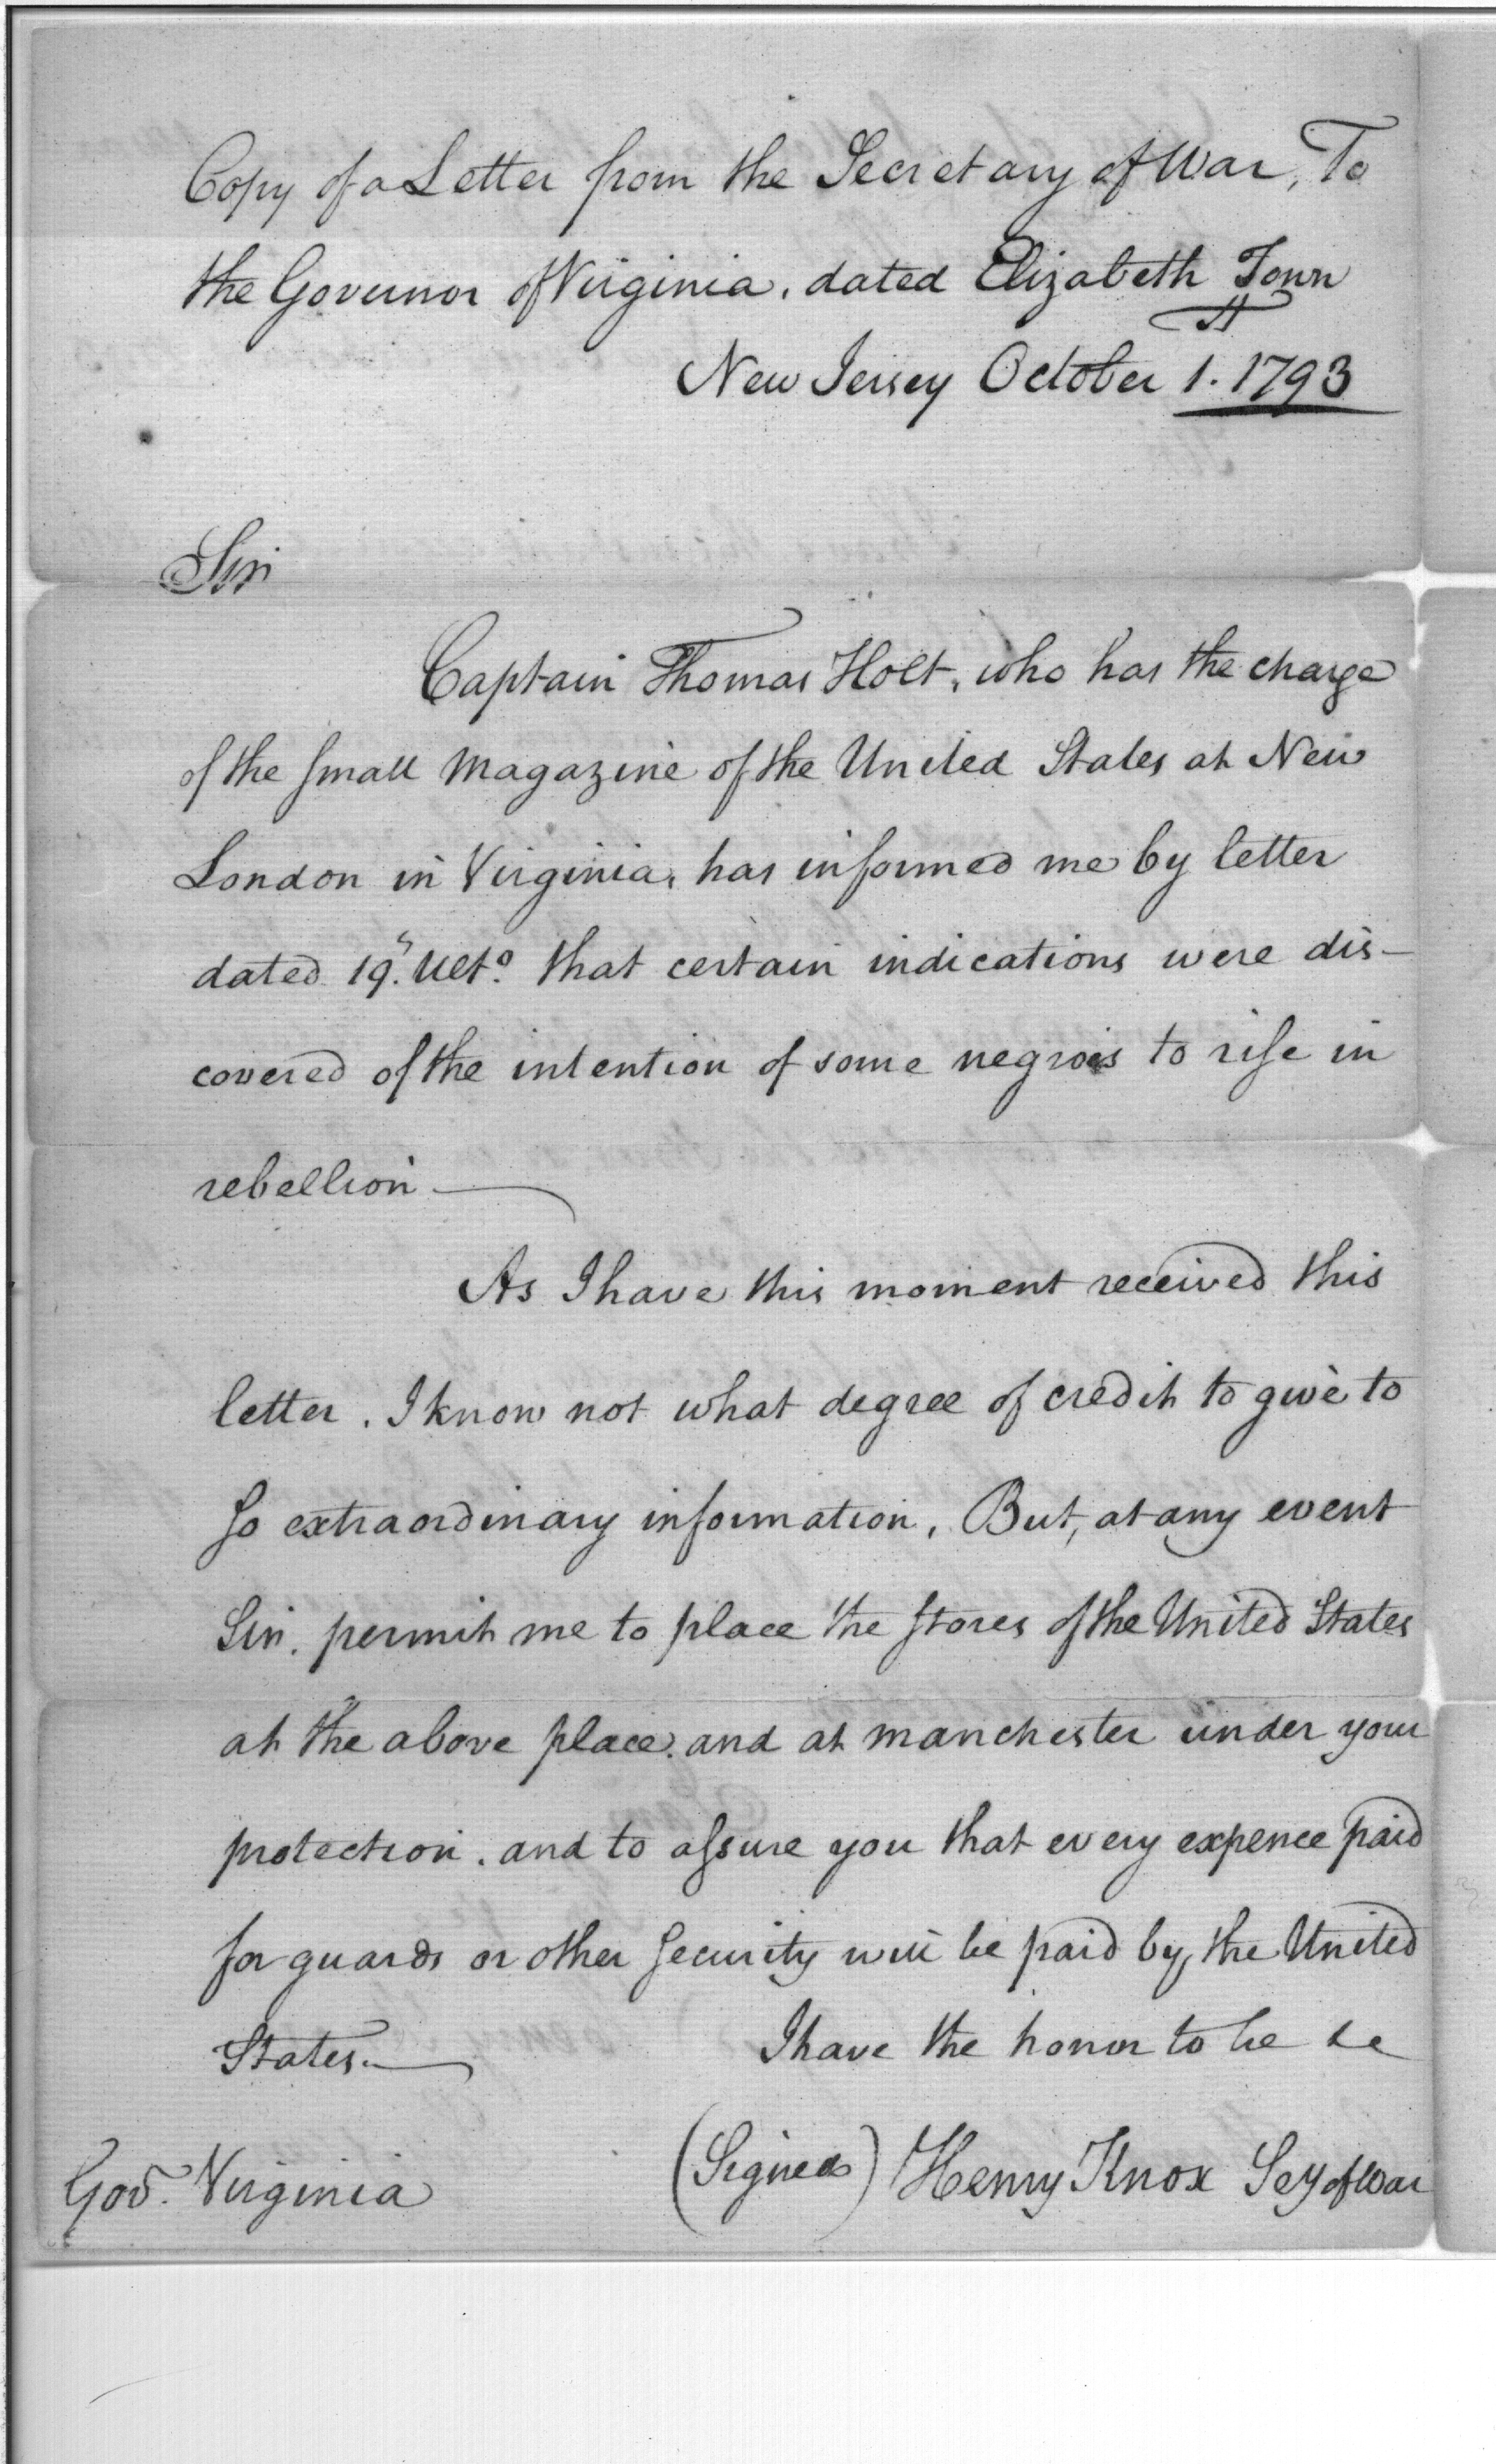 Copy of a Letter from the Secretary of War, To
the Governor of Virginia, dated Elizabeth Town
New Jersey October 1. 1793
Sir
Captain Thomas Holt, who has the charge
of the small magazine of the United States at New
London in Virginia, has informed me by letter
dated 19.h Ulto. that certain indications were dis-
covered of the intention of some negroes to rise in
rebellion —
As I have this moment received this
letter. I know not what degree of credit to give to
so extraordinary information. But, at any event
Sir, permit me to place the stores of the United States
at the above place, and at manchester under your
protection, and to assure you that every expence paid
for guards or other security will be paid by, the United
States. —
I have the honor to be &c
(Signed) Henry Knox Sey of War
Gov. Virginia